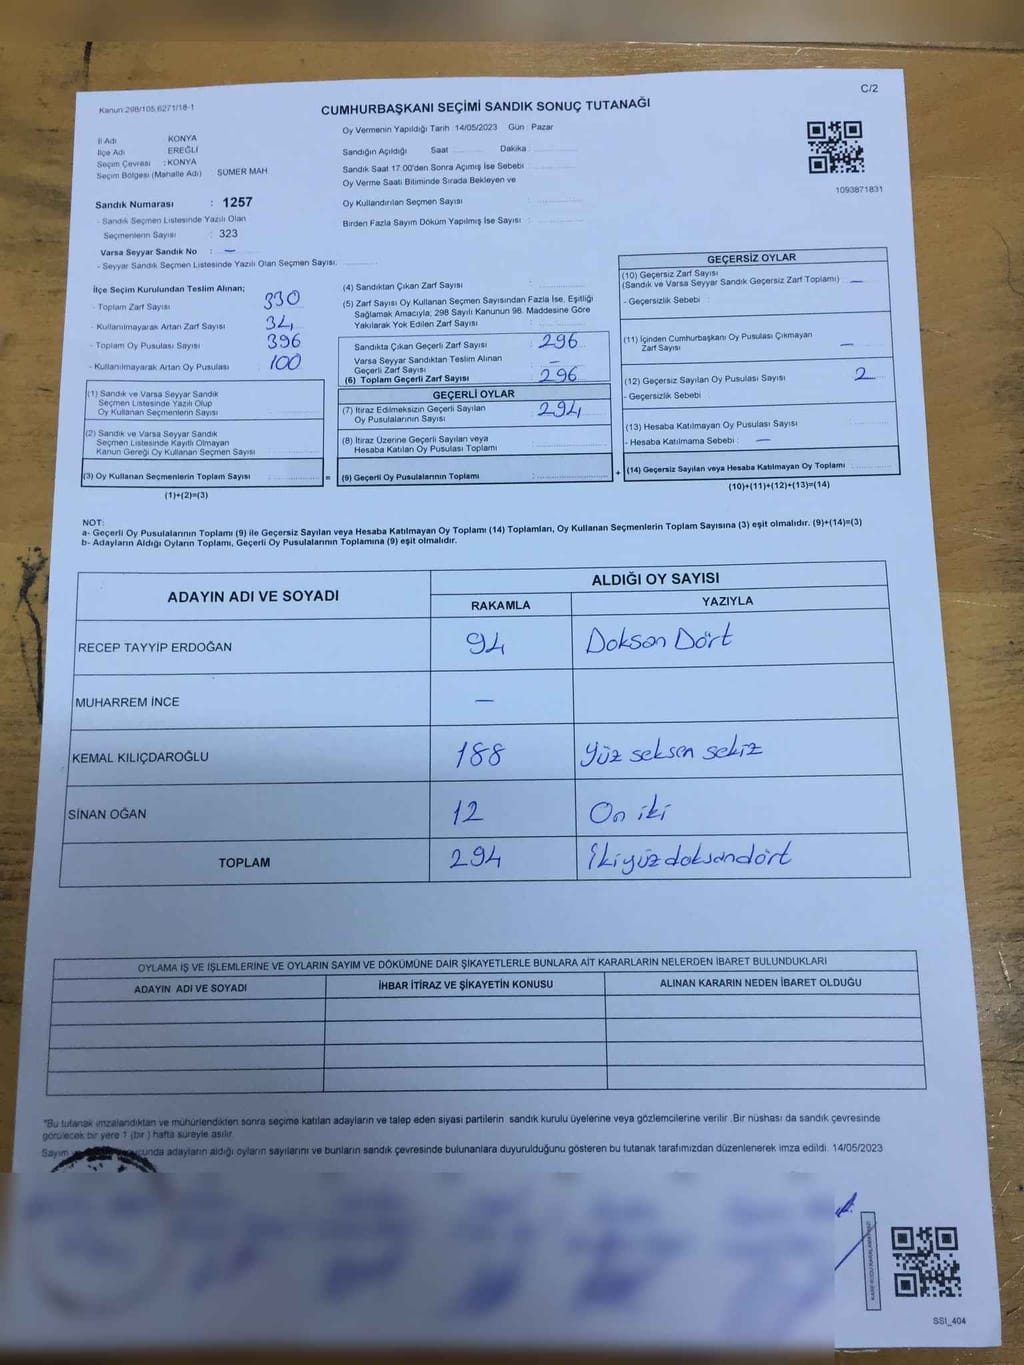 Kanun:298/105,6271/18-1
C/2
CUMHURBAŞKANI SEÇİMİ SANDIK SONUÇ TUTANAĞI
İl Adı KONYA
İlçe Adı EREĞLİ
Seçim Çevresi : KONYA
Seçim Bölgesi (Mahalle Adı) SÜMER MAH
Oy Vermenin Yapıldığı Tarih 14/05/2023 Gün : Pazar
Sandığın Açıldığı Saat Dakika :
Sandık Saat 17.00'den Sonra Açımış İse Sebebi
Oy Verme Saati Bitiminde Sırada Bekleyen ve
Oy Kullandırılan Seçmen Sayısı :
Birden Fazla Sayım Döküm Yapılmış İse Sayısı :
1093871831
Sandık Numarası : 1257
- Sandık Seçmen Listesinde Yazılı Olan
Seçmenlerin Sayısı : 323
Varsa Seyyar Sandık No : —
- Seyyar Sandık Seçmen Listesinde Yazılı Olan Seçmen Sayısı:
İlçe Seçim Kurulundan Teslim Alınan;
- Toplam Zarf Sayısı 330
- Kullanılmayarak Artan Zarf Sayısı 34
- Toplam Oy Pusulası Sayısı 396
- Kullanılmayarak Artan Oy Pusulası : 100
(1) Sandık ve Varsa Seyyar Sandık
Seçmen Listesinde Yazılı Olup
Oy Kullanan Seçmenlerin Sayısı :
(2) Sandık ve Varsa Seyyar Sandık
Seçmen Listesinde Kayıtlı Olmayan
Kanun Gereği Oy Kullanan Seçmen Sayısı :
(3) Oy Kullanan Seçmenlerin Toplam Sayısı :
(1)+(2)=(3)
=
(4) Sandıktan Çıkan Zarf Sayısı :
(5) Zarf Sayısı Oy Kullanan Seçmen Sayısından Fazla İse, Eşitliği
Sağlamak Amacıyla; 298 Sayılı Kanunun 98. Maddesine Göre
Yakılarak Yok Edilen Zarf Sayısı :
Sandıkta Çıkan Geçerli Zarf Sayısı : 296
Varsa Seyyar Sandıktan Teslim Alınan
Geçerli Zarf Sayısı : —
(6) Toplam Geçerli Zarf Sayısı : 296
GEÇERLİ OYLAR
(7) İtiraz Edilmeksizin Geçerli Sayılan
Oy Pusulalarının Sayısı : 294
(8) İtiraz Üzerine Geçerli Sayılan veya
Hesaba Katılan Oy Pusulası Toplamı :
(9) Geçerli Oy Pusulalarının Toplamı :
+
GEÇERSİZ OYLAR
(10) Geçersiz Zarf Sayısı
(Sandık ve Varsa Seyyar Sandık Geçersiz Zarf Toplamı) : —
- Geçersizlik Sebebi :
(11) İçinden Cumhurbaşkanı Oy Pusulası Çıkmayan
Zarf Sayısı —
(12) Geçersiz Sayılan Oy Pusulası Sayısı : 2
- Geçersizlik Sebebi :
(13) Hesaba Katılmayan Oy Pusulası Sayısı :
- Hesaba Katılmama Sebebi : —
(14) Geçersiz Sayılan veya Hesaba Katılmayan Oy Toplamı :
(10)+(11)+(12)+(13)=(14)
NOT:
a- Geçerli Oy Pusulalarının Toplamı (9) ile Geçersiz Sayılan veya Hesaba Katılmayan Oy Toplamı (14) Toplamları, Oy Kullanan Seçmenlerin Toplam Sayısına (3) eşit olmalıdır. (9)+(14)=(3)
b- Adayların Aldığı Oyların Toplamı, Geçerli Oy Pusulalarının Toplamına (9) eşit olmalıdır.
ADAYIN ADI VE SOYADI
ALDIĞI OY SAYISI
RAKAMLA YAZIYLA
RECEP TAYYİP ERDOĞAN 94 Doksan Dört
MUHARREM İNCE —
KEMAL KILIÇDAROĞLU 188 Yüz seksen sekiz
SİNAN OĞAN 12 On iki
TOPLAM 294 İkiyüzdoksandört
OYLAMA İŞ VE İŞLEMLERİNE VE OYLARIN SAYIM VE DÖKÜMÜNE DAİR ŞİKAYETLERLE BUNLARA AİT KARARLARIN NELERDEN İBARET BULUNDUKLARI
ADAYIN ADI VE SOYADI İHBAR İTİRAZ VE ŞİKAYETİN KONUSU ALINAN KARARIN NEDEN İBARET OLDUĞU
*Bu tutanak imzalandıktan ve mühürlendikten sonra seçime katılan adayların ve talep eden siyasi partilerin sandık kurulu üyelerine veya gözlemcilerine verilir. Bir nüshası da sandık çevresinde
görülecek bir yere 1 (bir ) hafta süreyle asılır.
Sayım adayların aldığı oyların sayılarını ve bunların sandık çevresinde bulunanlara duyurulduğunu gösteren bu tutanak tarafımızdan düzenlenerek imza edildi. 14/05/2023
SSI_404